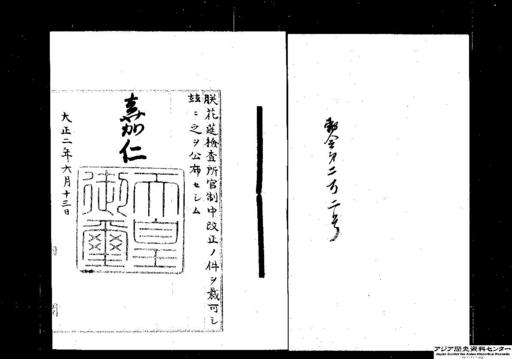 勅令第二百二号
朕花莚検査所官制中改正ノ件ヲ裁可シ
玆ニ之ヲ公布セシム
嘉仁
天皇
御璽
大正二年六月十三日
アジア歴史資料センター
Japan Center for Asian Historical Records